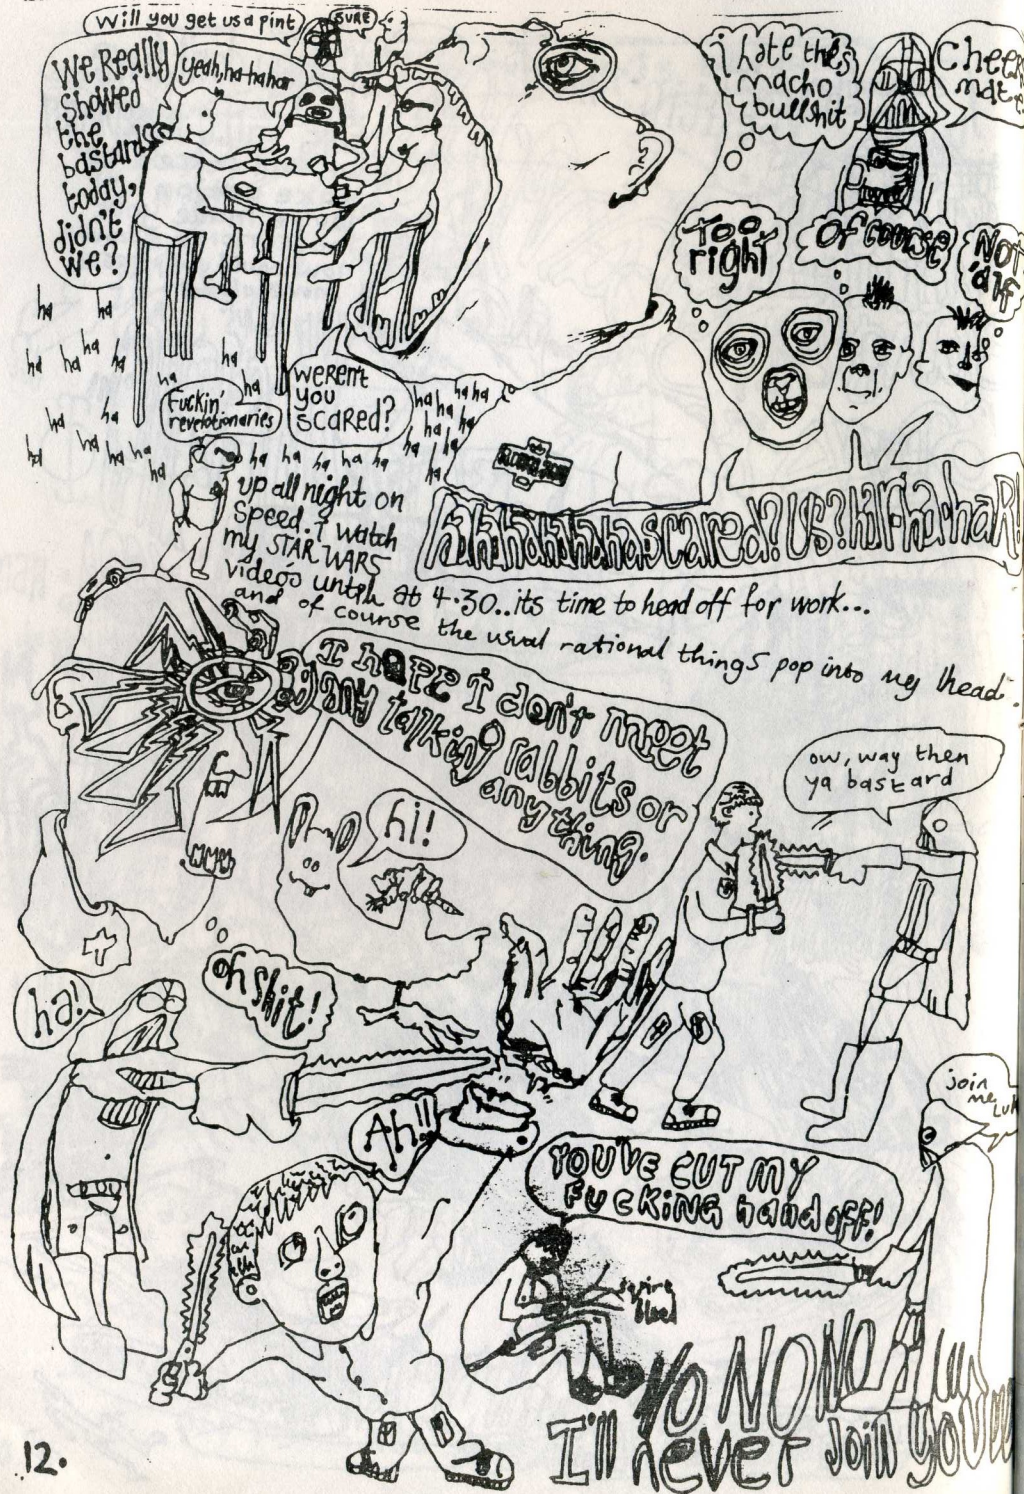 Will you get us a pint
SURE
We Really
showed
the
bastards
today,
didn't
we?
yeah, ha-ha har
i hate this
macho
bullshit
Cheers
mate
Too
right
Of course
NOT
'alf
ha ha
ha
ha ha ha
ha
ha
ha
ha ha
ha ha ha ha
ha
ha
Fuckin'
revolotionaries
weren't
you
scared?
ha ha
ha ha
ha ha
ha ha
ha
ha ha ha ha ha
hahahahahahascared? Us? har-ha-haR!
up all night on
Speed. I watch
my STAR WARS
videos until at 4.30.. its time to head off for work...
and of course the usual rational things pop into my head.
I hope I don't meet
any talking rabbits or
anything.
hi!
oh shit!
ow, way then
ya bastard
ha!
Ah!!
join
me Luk
YOU'VE CUT MY
FUCKING hand off!
squirt
blood
NO NO NO
I'll never join you
12.